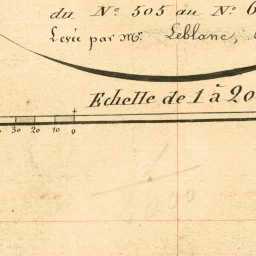 du N° 505 au N° 6
Levée par Mr. Leblanc,
Echelle de 1 à 20
30 20 10 0